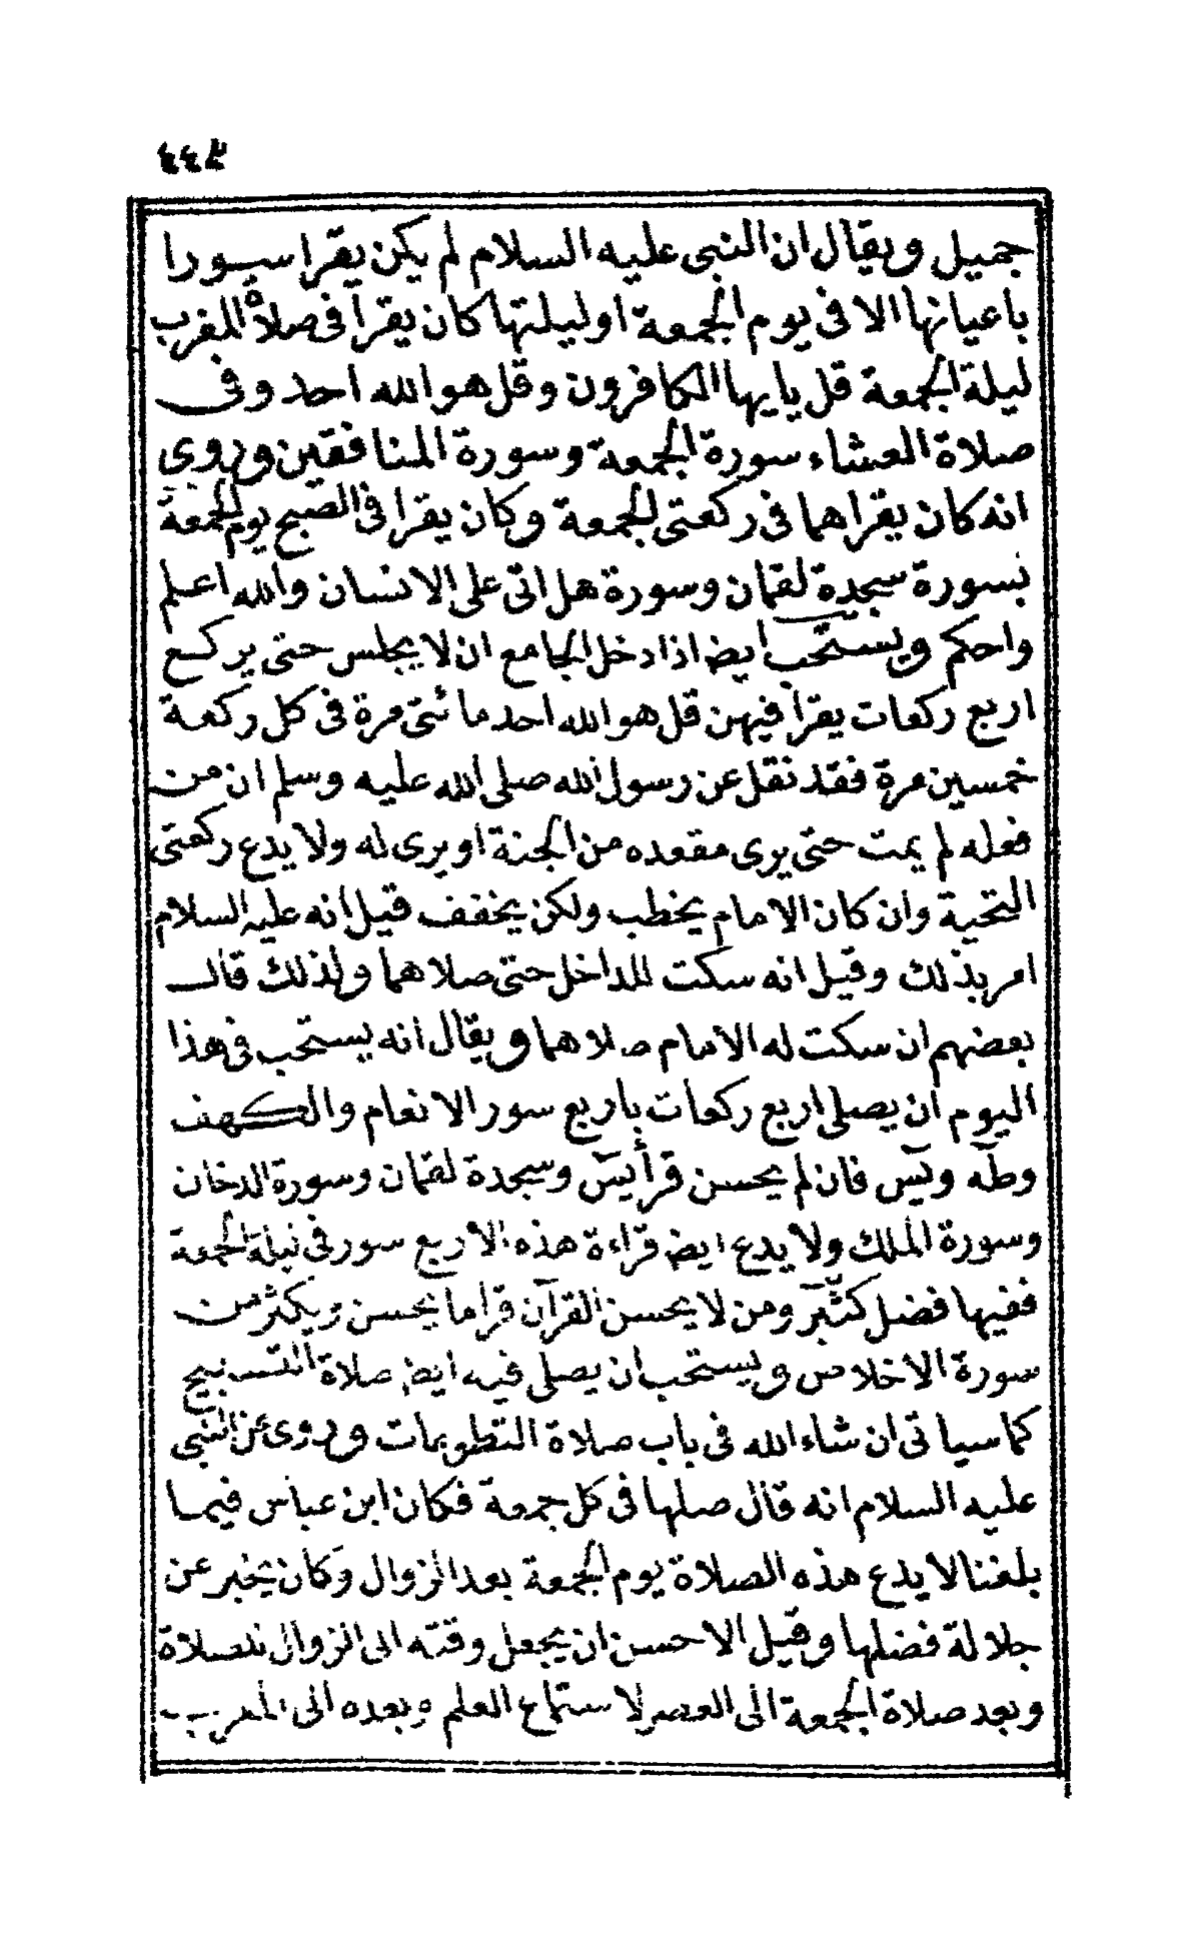 ٤٤٣
جميل ويقال ان النبى عليه السلام لم يكن يقرا سورا
باعيانها الا فى يوم الجمعة او ليلتها كان يقرأ فى صلاة المغرب
ليلة الجمعة قل يايها الكافرون وقل هو الله احد وفى
صلاة العشاء سورة الجمعة وسورة المنافقين وروى
انه كان يقراهما فى ركعتى الجمعة وكان يقرا فى الصبح يوم الجمعة
بسورة سجدة لقمان وسورة هل اتى على الانسان والله اعلم
واحكم ويستحب ايض اذا دخل الجامع ان لا يجلس حتى يركع
اربع ركعات يقرأ فيهن قل هو الله احد مائتى مرة فى كل ركعة
خمسين مرة فقد نقل عن رسول الله صلى الله عليه وسلم ان من
فعله لم يمت حتى يرى مقعده من الجنة او يرى له ولا يدع ركعتى
التحية وان كان الامام يخطب ولكن يخفف قيل انه عليه السلام
امر بذلك وقيل انه سكت للداخل حتى صلاهما ولذلك قال
بعضهم ان سكت له الامام صلاهما ويقال انه يستحب فى هذا
اليوم ان يصلى اربع ركعات باربع سور الانعام والكهف
وطه ويس فان لم يحسن قرأ يس وسجدة لقمان وسورة الدخان
وسورة الملك ولا يدع ايض قراءة هذه الاربع سور فى ليلة الجمعة
ففيها فضل كثير ومن لا يحسن القرآن قرا ما يحسن ويكثر من
سورة الاخلاص ويستحب ان يصلى فيه ايض صلاة التسبيح
كما سياتى ان شاء الله فى باب صلاة التطوعات وروى عن النبى
عليه السلام انه قال صلها فى كل جمعة فكان ابن عباس فيما
بلغنا لا يدع هذه الصلاة يوم الجمعة بعد الزوال وكان يخبر عن
جلالة فضلها وقيل الاحسن ان يجعل وقته الى الزوال للصلاة
وبعد صلاة الجمعة الى العصر لاستماع العلم وبعده الى المغرب